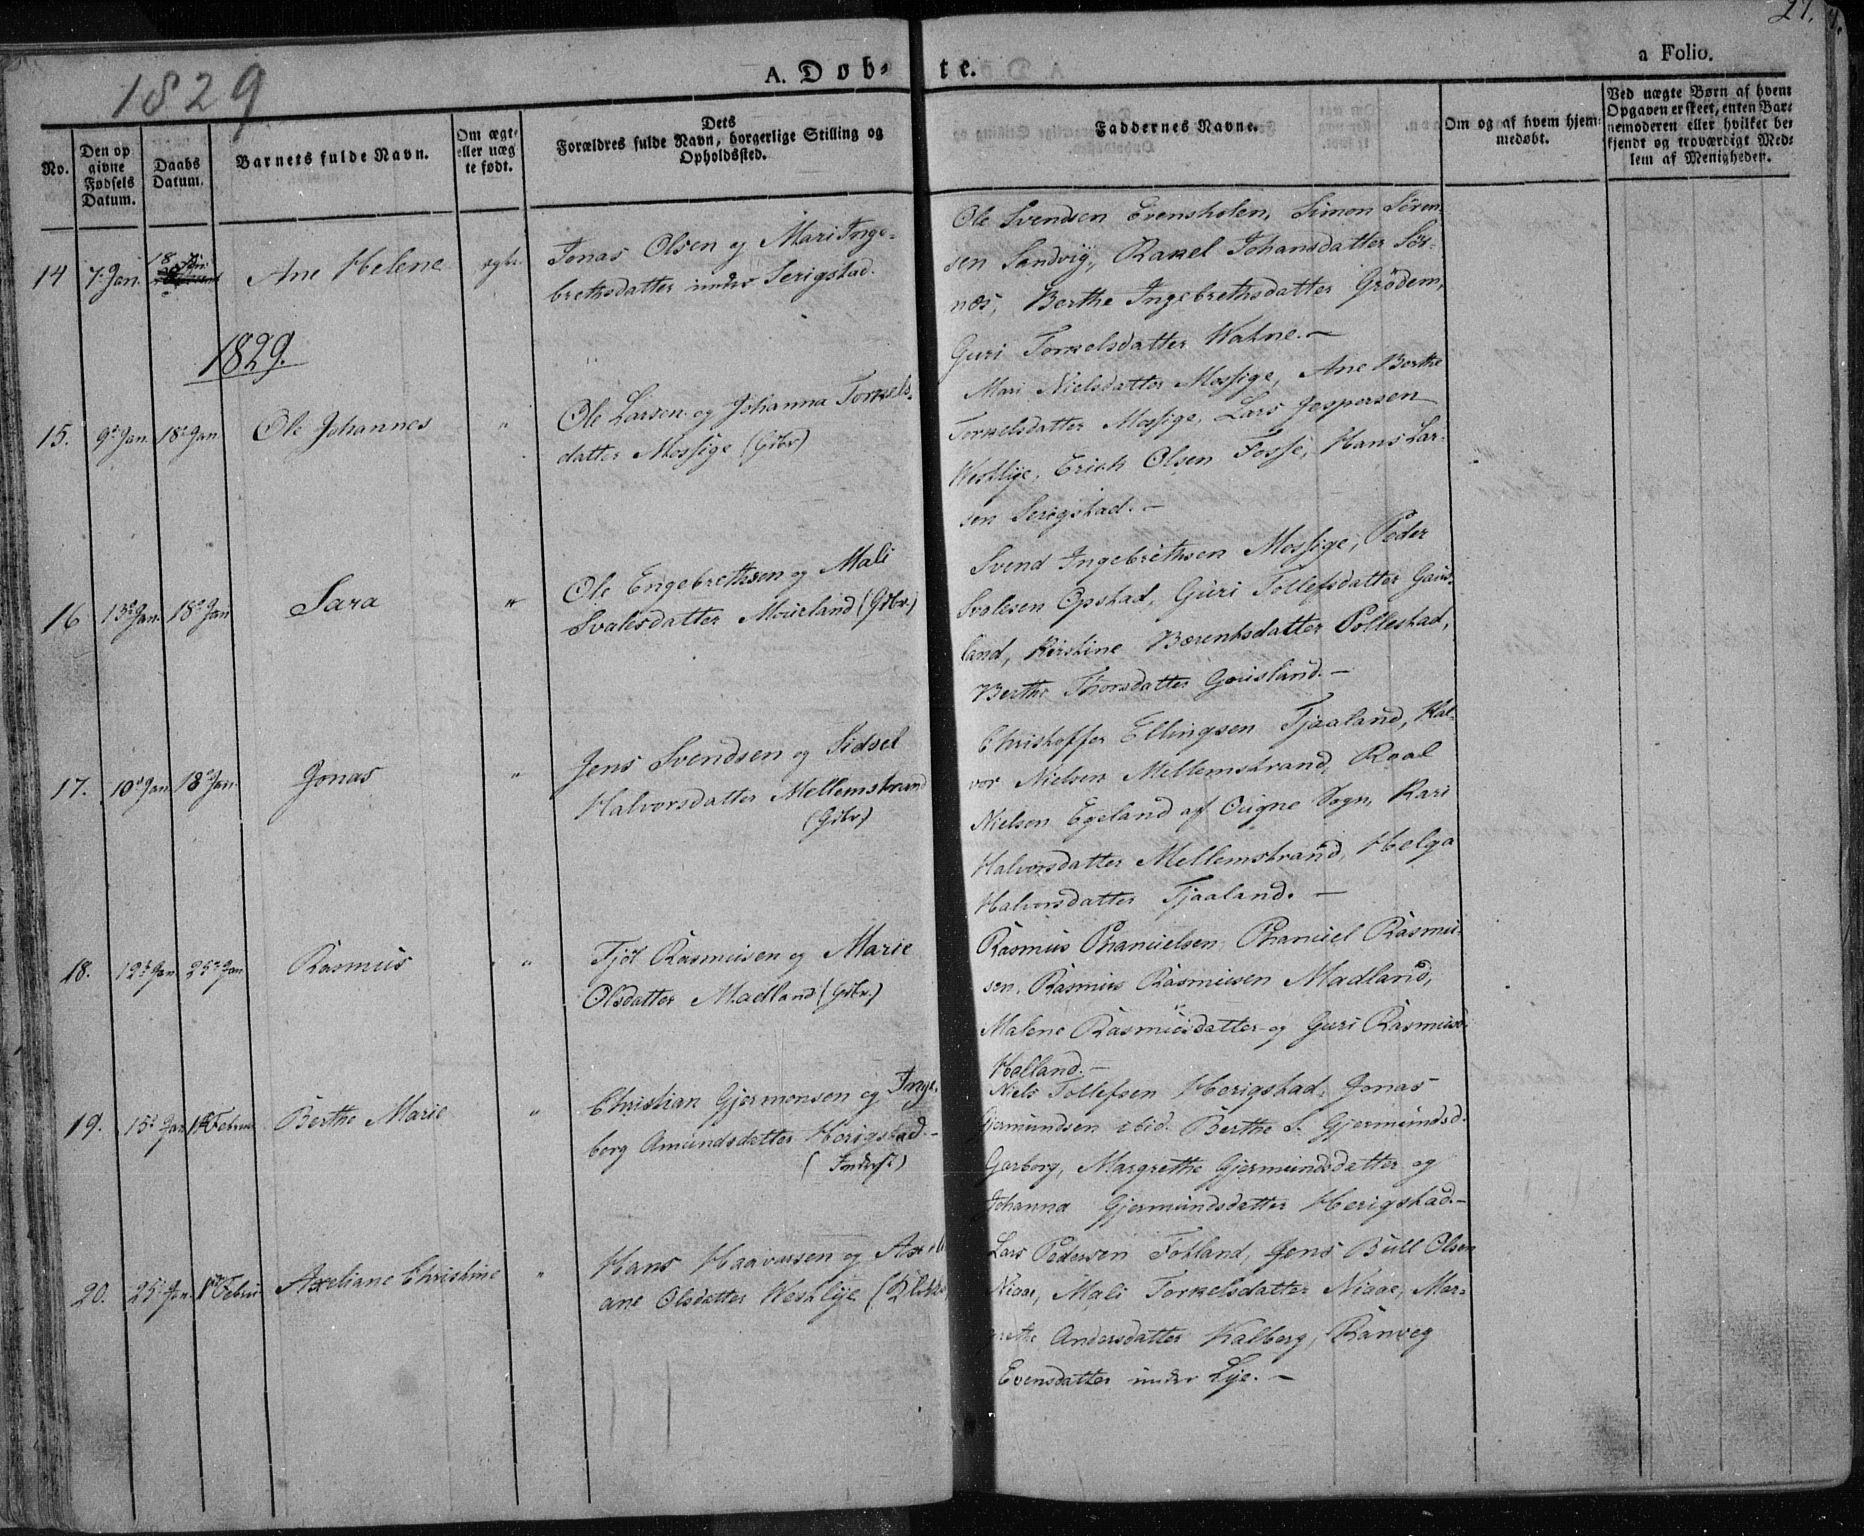 1829
A. Døb-
te.
a Folio.
27.
No.
Den op
givne
Fødsels
Datum.
Daabs
Datum.
Barnets fulde Navn.
Om ægte
eller uæg
te født.
Dets
Forældres fulde Navn, borgerlige Stilling og
Opholdssted.
Faddernes Navne.
Om og af hvem hjem-
medøbt.
Ved uægte Børn af hvem
Opgaven er skeet, enten Bar-
nemoderen eller hvilket be-
kjendt og troværdigt Med-
lem af Menigheden.
14 7. Jan. 18 Jan Ane Helene ægte.
Jonas Olsen og Mari Inge-
brethsdatter under Serigstad.
Ole Svendsen Evensholen, Simon Sören-
sen Sandvig, Rakel Johansdatter Sör-
næs, Berthe Ingebrethsdatter Grödem,
Guri Torkelsdatter Watne. -
1829.
15. 9de Jan. 18de Jan Ole Johannes "
Ole Larsen og Johanna Torkels-
datter Mossige (Gbr)
Mari Nielsdatter Mossige, Ane Berthe
Torkelsdatter Mossige, Lars Jespersen
Westlye, Erich Olsen Fosse, Hans Lar-
sen Serigstad. -
16 13de Jan. 18de Jan Sara "
Ole Engebrethsen og Mali
Svalesdatter Moieland (Gbr.)
Svend Ingebrethsen Mossige, Peder
Svalesen Opstad, Guri Tollefsdatter Gaus-
land, Kirstine Bærentsdatter Pollestad,
Berthe Thorsdatter Gousland. -
17. 10de Jan 18de Jan. Jonas "
Jens Svendsen og Sidsel
Halvorsdatter Mellemstrand
(Gbr)
Christoffer Ellingsen Tjaaland, Hal-
vor Nielsen Mellemstrand, Roal
Nielsen Egeland af Ougne Sogn, Kari
Halvorsdatter Mellemstrand, Helga
Halvorsdatter Tjaaland. -
18. 12te Jan 25de Jan Rasmus "
Tjöl Rasmusen og Marie
Olsdatter Madland (Gbr.)
Rasmus Phanuelsen, Phanuel Rasmu-
sen, Rasmus Rasmusen Madland,
Malene Rasmusdatter og Guri Rasmusd.
Holland. -
19. 15de Jan 1ste Februar Berthe Marie "
Christian Gjermonsen og Inge-
borg Amundsdatter Herigstad. -
(Inderst)
Niels Tollefsen Herigstad, Jonas
Gjermundsen ibid. Berthe S. Gjermundsd.
Garborg, Margrethe Gjermundsdatter og
Johanna Gjermundsdatter Herigstad. -
20. 25de Jan. 1ste Febru Axeliane Christine "
Hans Haavarsen og Axeli
ane Olsdatter Westlye
Lars Pedersen Totland, Jens Bull Olsen
Niaae, Mali Torkelsdatter Niaae, Mar-
grethe Andersdatter Kalberg, Ranveg
Evensdatter under Lye. -